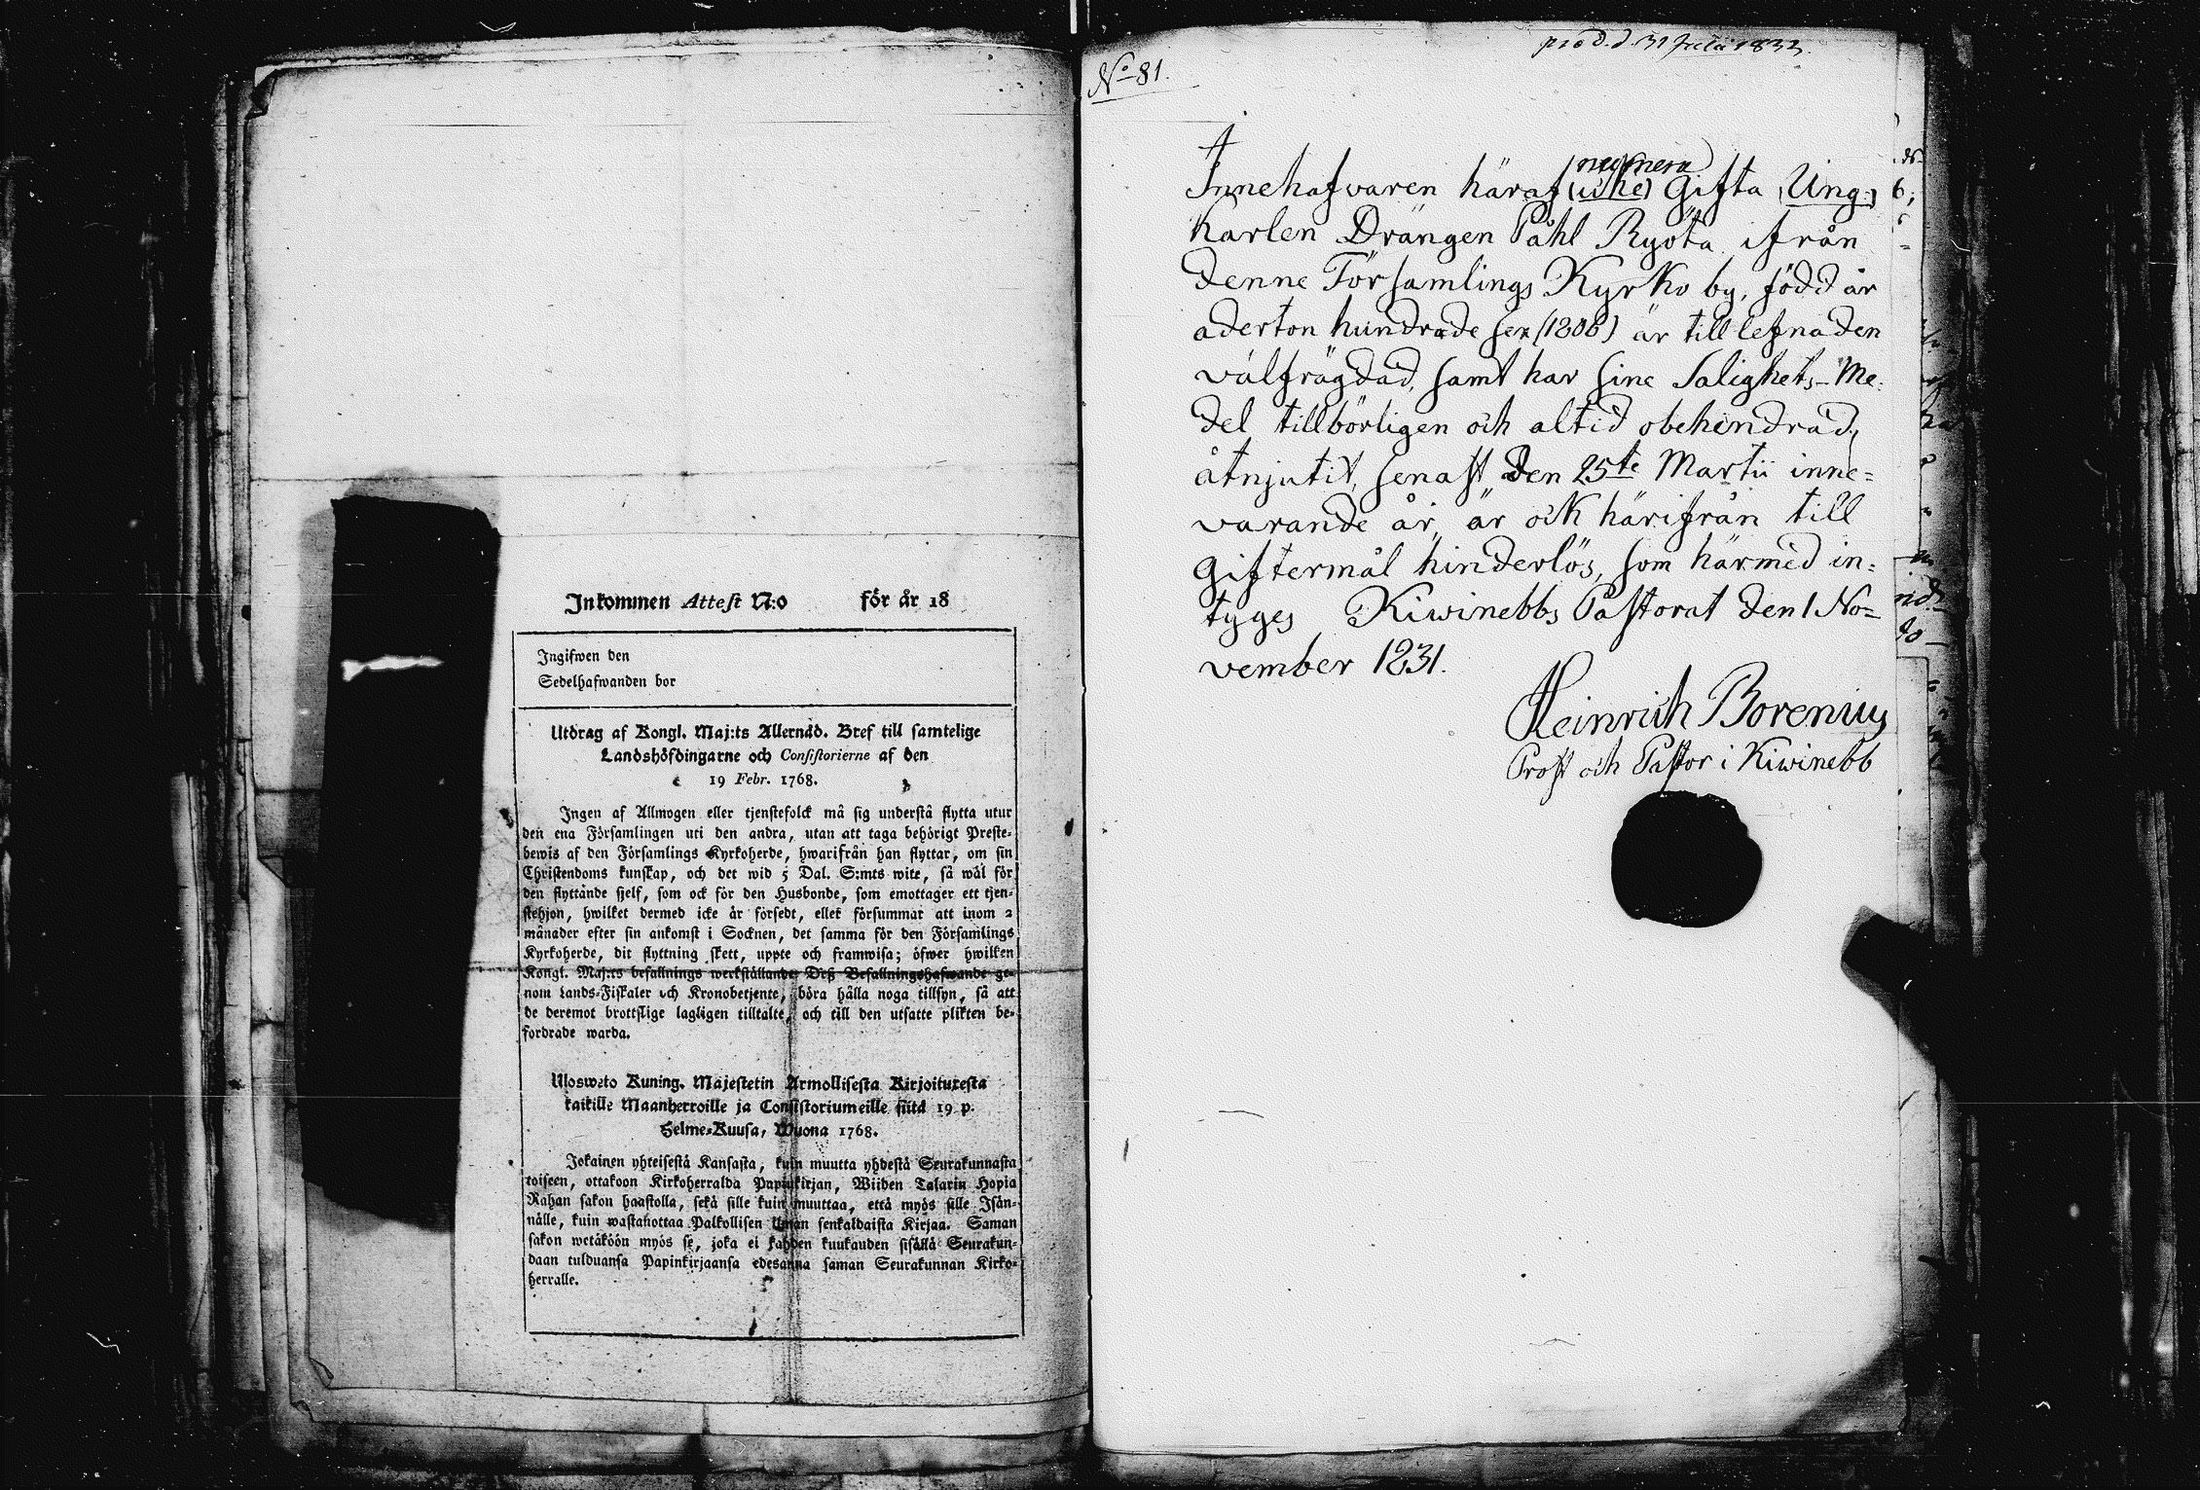 Inkommen Attest N:o för år 18
Ingifwen den
Sedelhafwanden bor
Utdrag af Kongl. Maj:ts Allernåd. Bref till samtelige
Landshöfdingarne och Consistorierne af den
19 Febr. 1768.
Ingen af Allmogen eller tjenstefolck må sig understå flytta utur
den ena Församlingen uti den andra, utan att taga behörigt Preste-
bewis af den Församlings Kyrkoherde, hwarifrån han flyttar, om sin
Christendoms kunskap, och det wid 5 Dal. S:mts wite, så wäl för
den flyttande sjelf, som ock för den Husbonde, som emottager ett tjen-
stehjon, hwilket dermed icke är försedt, eller försummar att inom 2
månader efter sin ankomst i Socknen, det samma för den Församlings
Kyrkoherde, dit flyttning skett, uppte och framwisa; öfwer hwilken
Kongl. Maj:ts befallnings werkställande Deß Befallningshafwande ge-
nom Lands-Fiskaler och Kronobetjente, böra hålla noga tillsyn, så att
de deremot brottslige lagligen tilltalte, och till den utsatte plikten be-
fordrade warda.
Ulosweto Kuning. Majestetin Armollisesta Kirjoituxesta
kaikille Maanherroille ja Consistoriumeille siitä 19 p.
Helme-Kuusa, Wuona 1768.
Jokainen yhteisestä Kansasta, kuin muutta yhdestä Seurakunnasta
toiseen, ottakoon Kirkoherralda Papinkirjan, Wiiden Talarin Hopia
Rahan sakon haastolla, sekä sille kuin muuttaa, että myös sille Isän-
nälle, kuin wastanottaa Palkollisen ilman senkaldaista Kirjaa. Saman
sakon wetäköön myös se, joka ei kahden kuukauden sisällä Seurakun-
daan tulduansa Papinkirjaansa edesanna saman Seurakunnan Kirko-
herralle.
No 81.
prod. d. 31 Julii 1832.
Innehafwaren häraf (icke) Gifta (Ung-)
Karlen Drängen Påhl Ryötä ifrån
denne Församlings Kyrko by, född år
aderton hundrade sex (1806) är till lefnaden
välfrägdad, samt har sine Salighets-Me-
del tillbörligen och altid obehindrad,
åtnjutit, senast den 25te Martii inne=
varande år, är ock härifrån till
Giftermål hinderlös, som härmed in=
tyges Kiwinebbs Pastorat den 1 No=
vember 1831.
Heinrich Borenius
Prost och Pastor i Kiwinebb